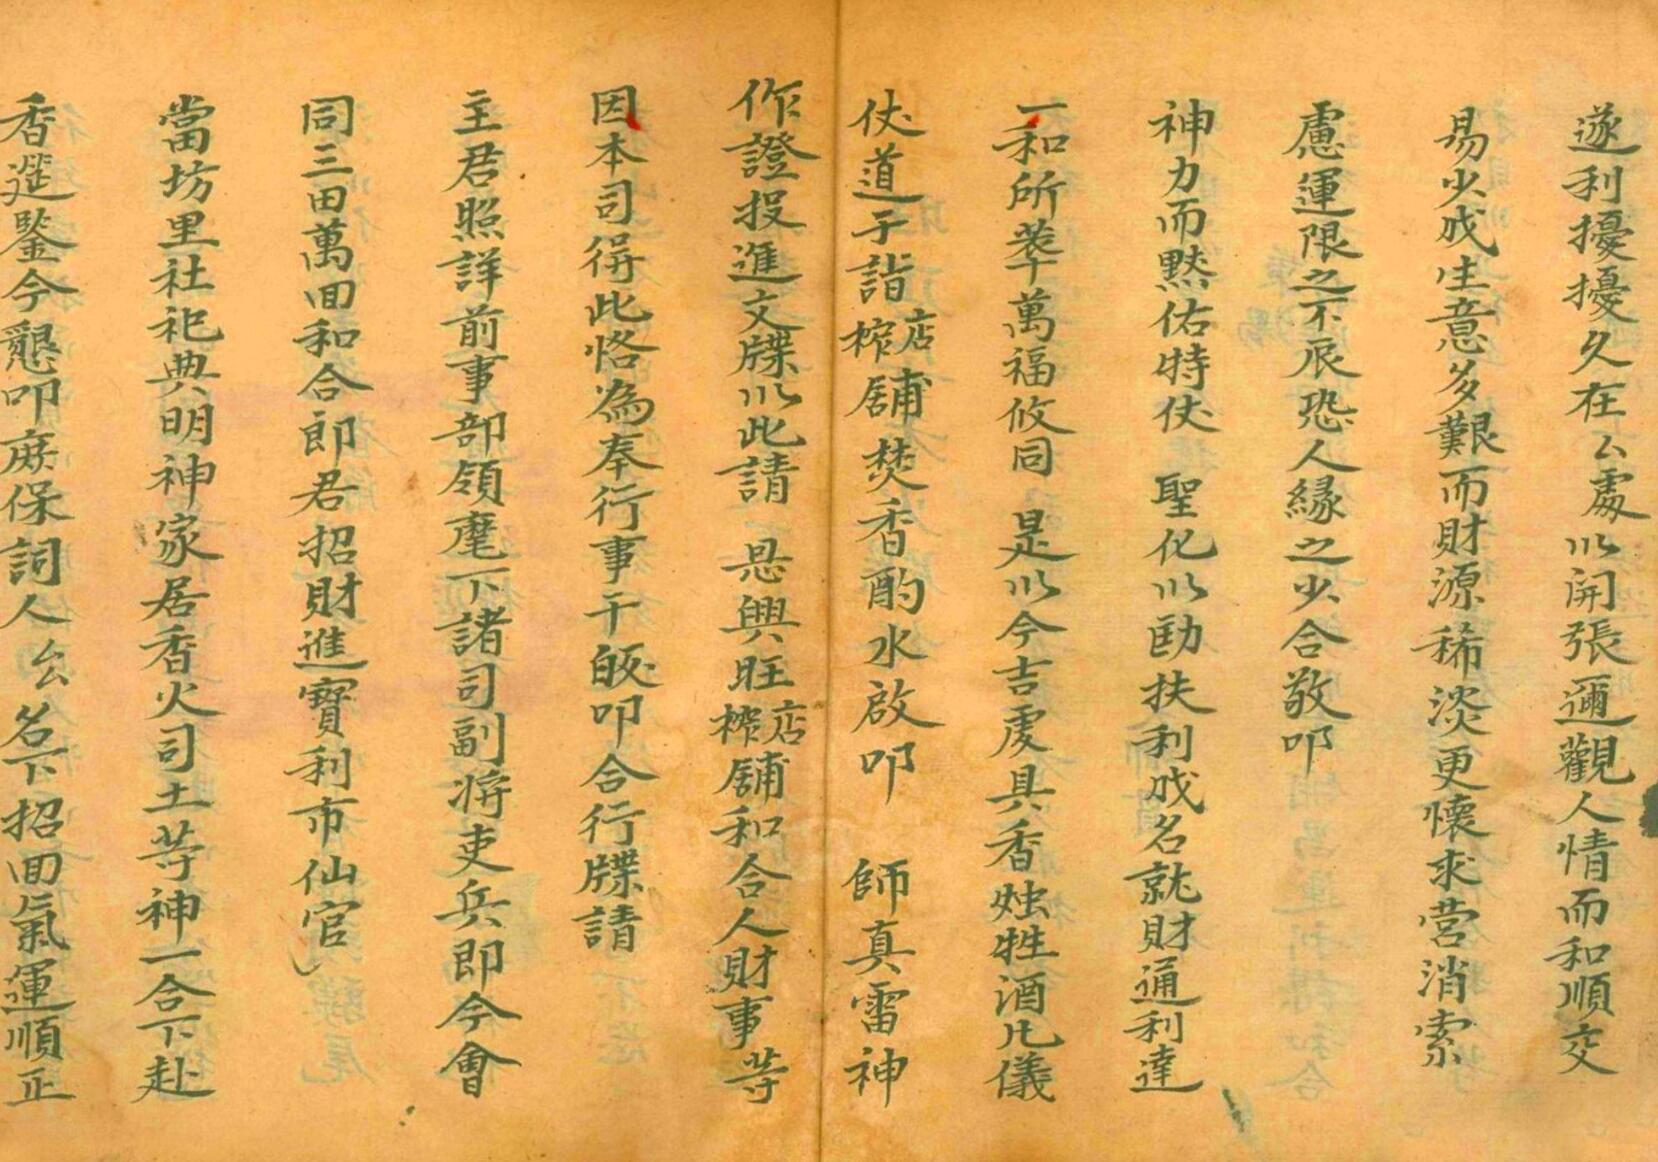 遂利擾擾久在厶處以開張邇觀人情而和順交
易少成生意多艱而財源稀淡更懷求营消索
慮運限之不辰恐人緣之少合敬叩
神力而默佑特仗 聖化以助扶利成名就財通利達
一和所萃萬福攸同 是以今吉虔具香烛牲酒凡儀
仗道于詣店榨舖焚香酌水啟叩 師真雷神
作證投進文牒以此請 恳興旺店榨舖和合人財事等
因本司得此恪為奉行事干 叩合行牒請
主君照詳前事部領麾下諸司副將吏兵即今會
同三田萬回和合郎君招財進寶利市仙官
當坊里社祀典明神家居香火司土等神一合下赴
香筵鑒今懇叩庥保詞人厶 名下招回氣運順正